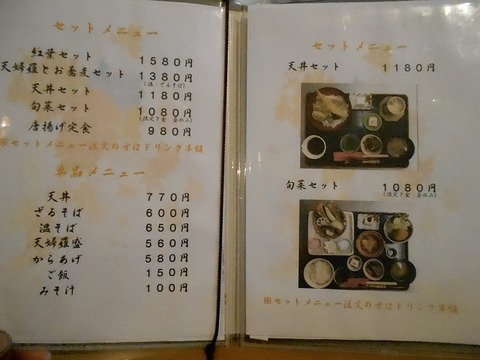 セットメニュー
紅葉セット 1580円
天婦羅とお蕎麦セット 1380円
(温・ざるそば)
天丼セット 1180円
旬菜セット 1080円
唐揚げ定食 980円
※セットメニュー注文の方はドリンク半額
単品メニュー
天丼 770円
ざるそば 600円
温そば 650円
天婦羅盛 560円
からあげ 580円
ご飯 150円
みそ汁 100円
セットメニュー
天丼セット 1180円
旬菜セット 1080円
※セットメニュー注文の方はドリンク半額